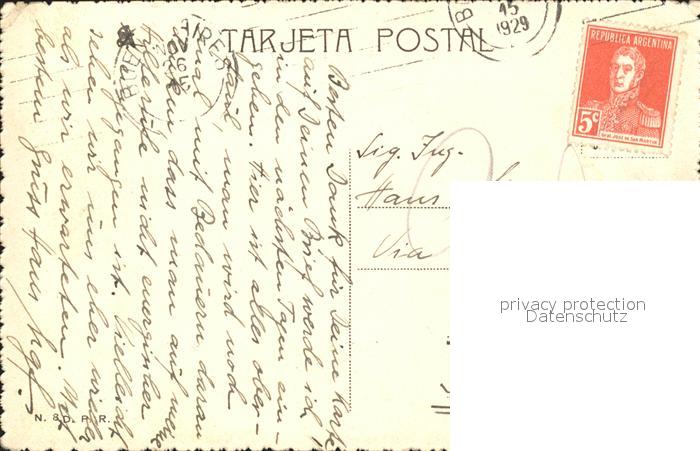 TARJETA POSTAL
BUENOS AIRES
15
1929
REPUBLICA ARGENTINA
5c
GRAL. JOSE DE SAN MARTIN
Besten Dank für Deine Karte
auf Deinen Brief werde ich
in den nächsten Tagen ein-
gehen. Hier ist alles ober-
faul, man wird noch
mal mit Bedauern daran
denken dass man auf
nicht energischer
gegangen ist. Vielleicht
sehen wir uns eher wieder
als wir erwarteten. Mit
bestem Gruss Hans
Sig. Ing.
Hans
Via
N. & D. P. R.
privacy protection
Datenschutz